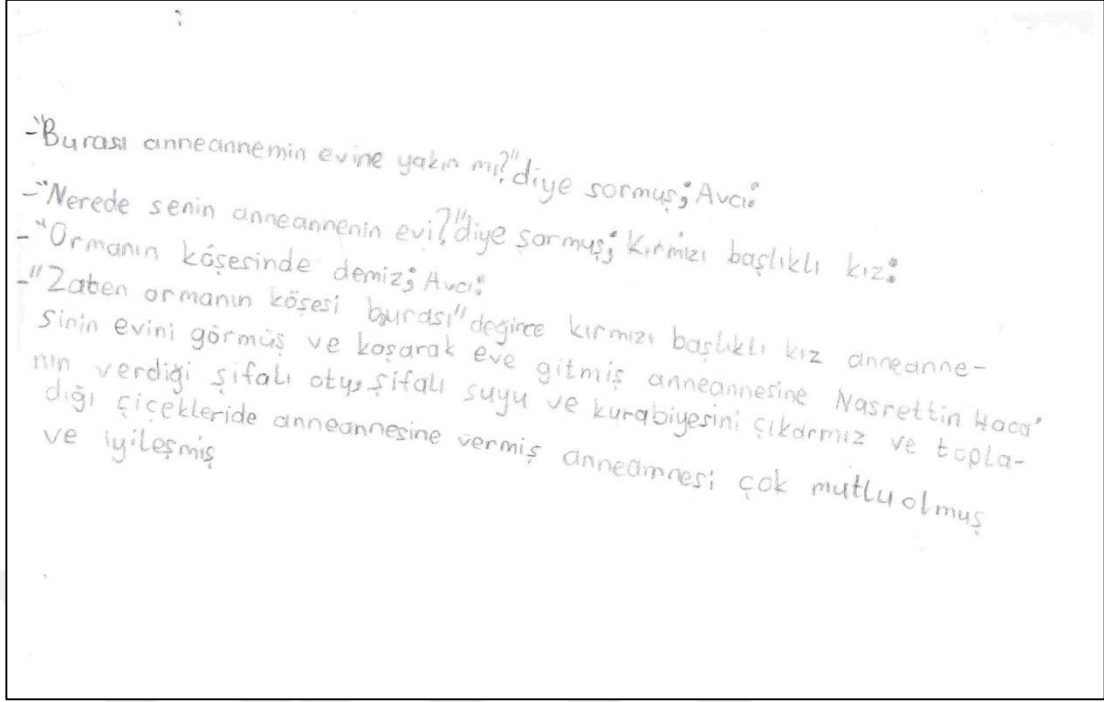 -"Burası anneannemin evine yakın mı?" diye sormuş; Avcı:
-"Nerede senin anneannenin evi?" diye sormuş; Kırmızı başlıklı kız:
-"Ormanın köşesinde demiz; Avcı:
-"Zaten ormanın köşesi burası" değince kırmızı başlıklı kız anneanne-
sinin evini görmüş ve koşarak eve gitmiş anneannesine Nasrettin Hoca'
nın verdiği şifalı otu, şifalı suyu ve kurabiyesini çıkarmız ve topla-
dığı çiçekleride anneannesine vermiş anneannesi çok mutlu olmuş
ve iyileşmiş